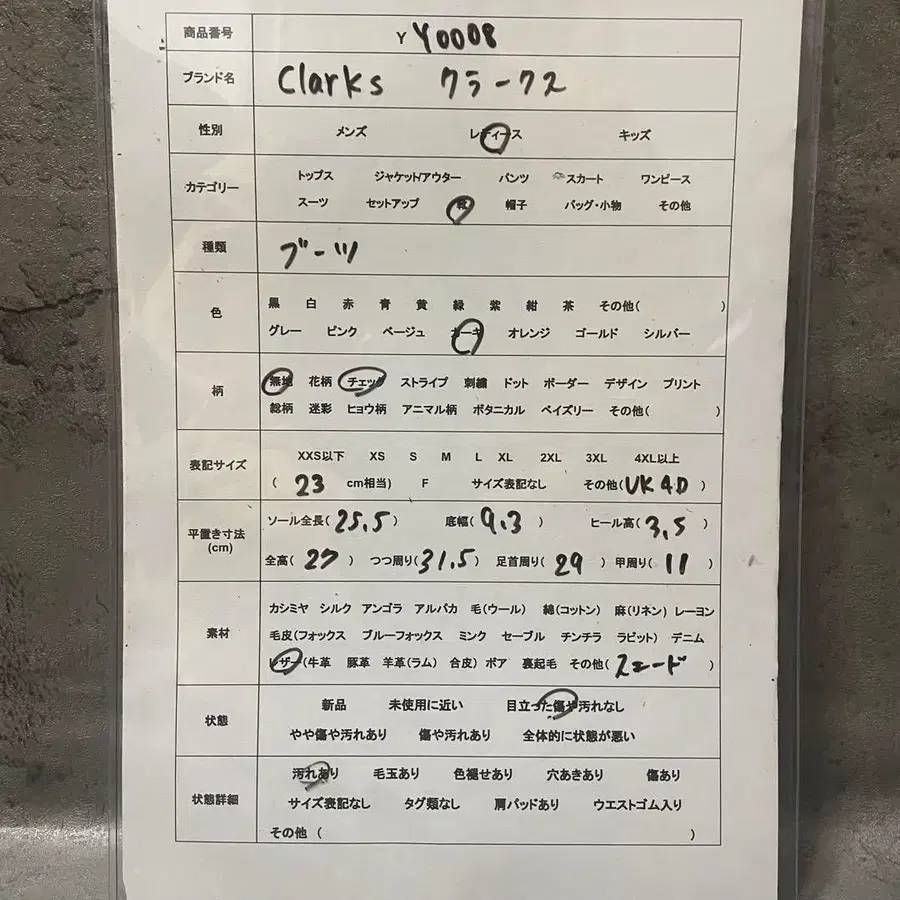 商品番号 Y Y0008
ブランド名 Clarks クラークス
性別 メンズ レディース キッズ
カテゴリー
トップス ジャケット/アウター パンツ スカート ワンピース
スーツ セットアップ 靴 帽子 バッグ・小物 その他
種類 ブーツ
色
黒 白 赤 青 黄 緑 紫 紺 茶 その他( )
グレー ピンク ベージュ カーキ オレンジ ゴールド シルバー
柄
無地 花柄 チェック ストライプ 刺繍 ドット ボーダー デザイン プリント
総柄 迷彩 ヒョウ柄 アニマル柄 ボタニカル ペイズリー その他( )
表記サイズ
XXS以下 XS S M L XL 2XL 3XL 4XL以上
( 23 cm相当) F サイズ表記なし その他(UK4D)
平置き寸法
(cm)
ソール全長(25.5) 底幅(9.3) ヒール高(3.5)
全高(27) つつ周り(31.5) 足首周り(29) 甲周り(11)
素材
カシミヤ シルク アンゴラ アルパカ 毛(ウール) 綿(コットン) 麻(リネン) レーヨン
毛皮(フォックス ブルーフォックス ミンク セーブル チンチラ ラビット) デニム
レザー(牛革 豚革 羊革(ラム) 合皮) ボア 裏起毛 その他(スエード)
状態
新品 未使用に近い 目立った傷や汚れなし
やや傷や汚れあり 傷や汚れあり 全体的に状態が悪い
状態詳細
汚れあり 毛玉あり 色褪せあり 穴あきあり 傷あり
サイズ表記なし タグ類なし 肩パッドあり ウエストゴム入り
その他 ( )